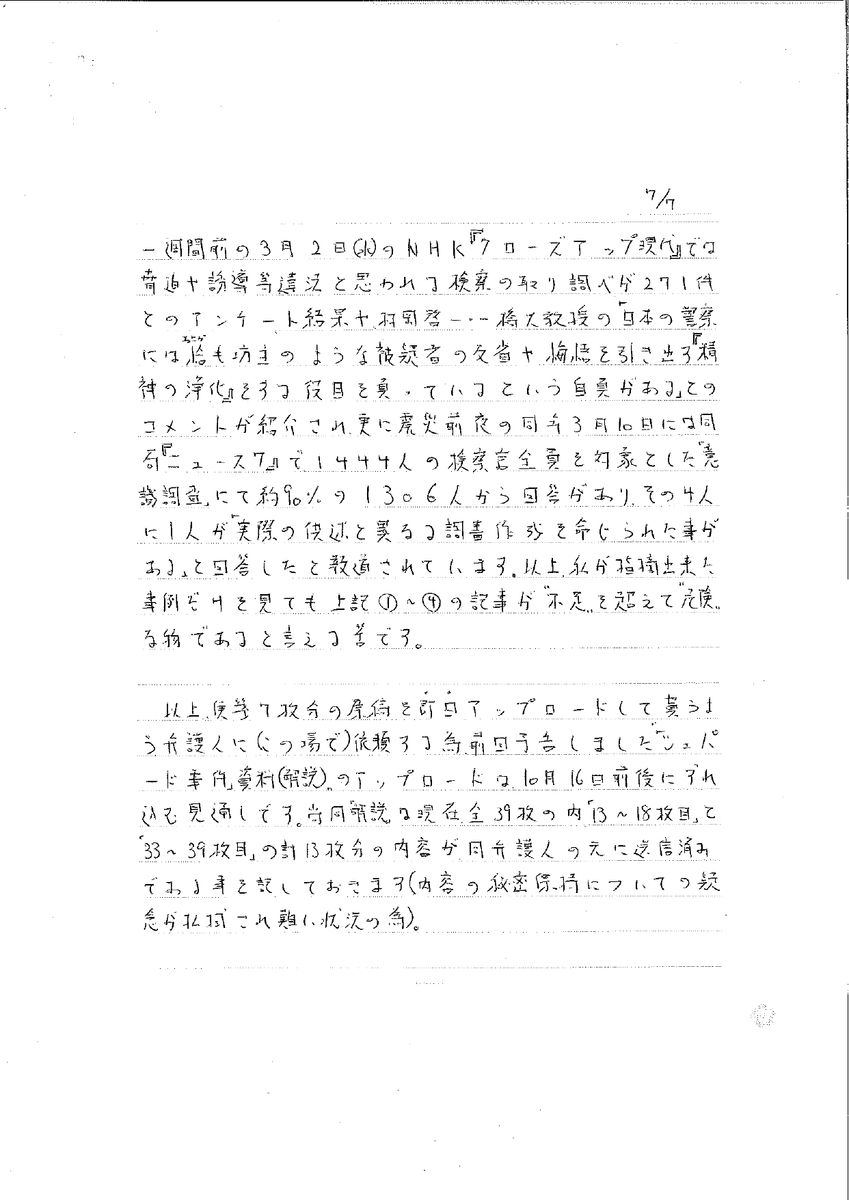 7/7
一週間前の3月2日(水)のNHK『クローズアップ現代』では
脅迫や誘導等違法と思われる検察の取り調べが271件
とのアンケート結果や村岡啓一・一橋大教授の「日本の警察
には恰も坊主のような被疑者の反省や悔悟を引き出す『精
神の浄化』をする役目を負っているという自負がある」との
コメントが紹介され更に震災前夜の同年3月10日には同
局『ニュース7』で1444人の検察官全員を対象とした「意
識調査」にて約90%の1306人から回答があり、その4人
に1人が「実際の供述と異なる調書作成を命じられた事が
ある」と回答したと報道されています。以上、私が指摘出来た
事例だけを見ても上記①~④の記事が"不足"を超えて"危険"
な物であると言える筈です。
以上、便箋7枚分の原稿を即日アップロードして貰うよ
う弁護人に(この場で)依頼する為前回予告しました「シェパ
ード事件」資料(解説)のアップロードは10月16日前後にずれ
込む見通しです。尚同「解説」は現在全39枚の内「13~18枚目」と
「33~39枚目」の計13枚分の内容が同弁護人の元に送信済み
である事を記しておきます(内容の秘密保持についての疑
念が払拭され難い状況の為)。